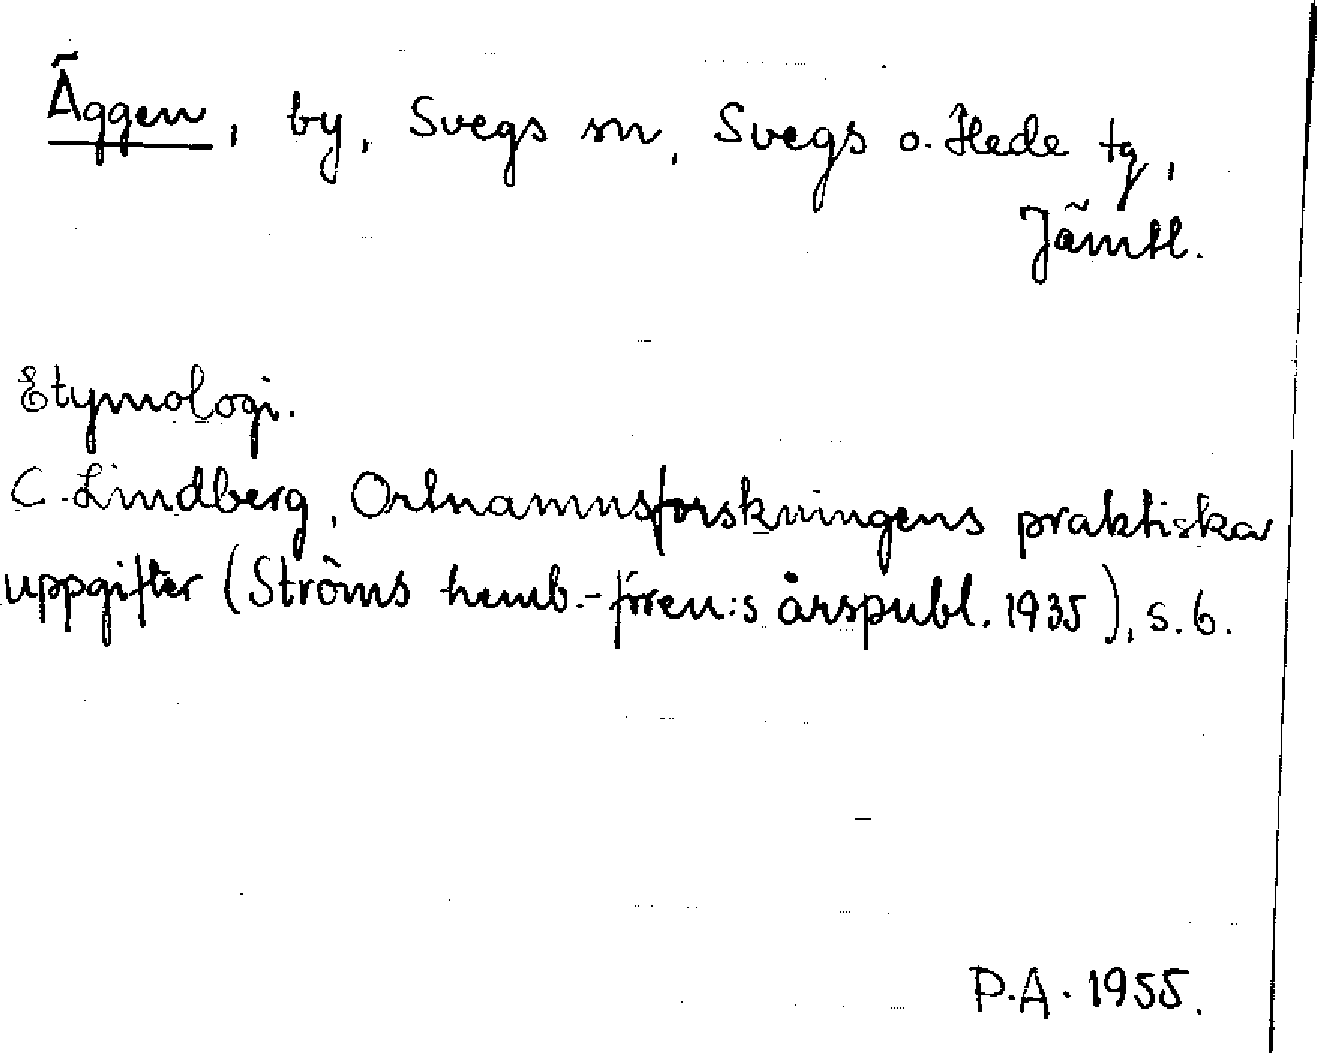 Äggen, by, Svegs sn, Svegs o. Hede tg,
Jämtl.
Etymologi.
C. Lindberg, Ortnamnsforskningens praktiska
uppgifter (Ströms hemb.-fören:s årspubl. 1935), s. 6.
P.A. 1955.